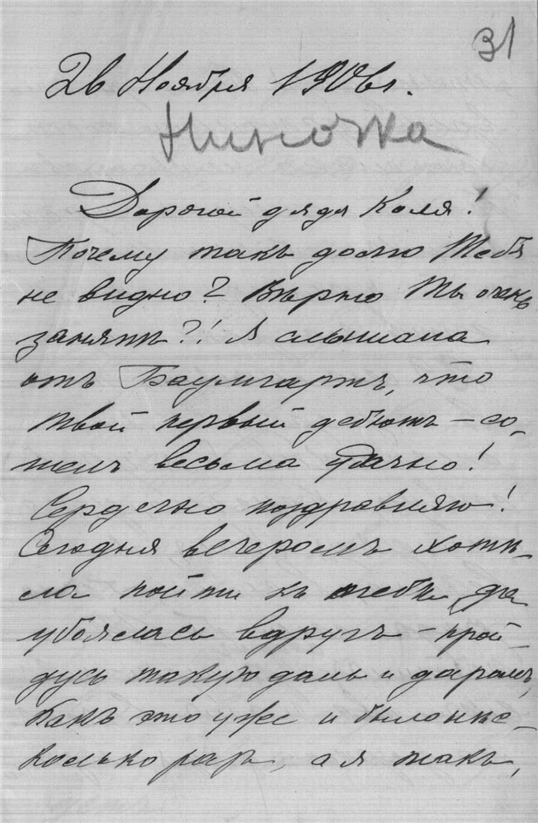 31
26 Ноября 1906 г.
Ниночка
Дорогой дядя Коля!
Почему такъ долго Тебя
не видно? Вѣрно Ты очень
занятъ?! Я слышала
отъ Баумгартъ, что
твой первый дебютъ – со-
шелъ весьма удачно!
Сердечно поздравляю!
Сегодня вечеромъ хотѣ-
ла пойти къ тебѣ, да
убоялась вдругъ – прой-
дусь такую даль и даромъ,
какъ это уже и было нѣс-
колько разъ, а я такъ,